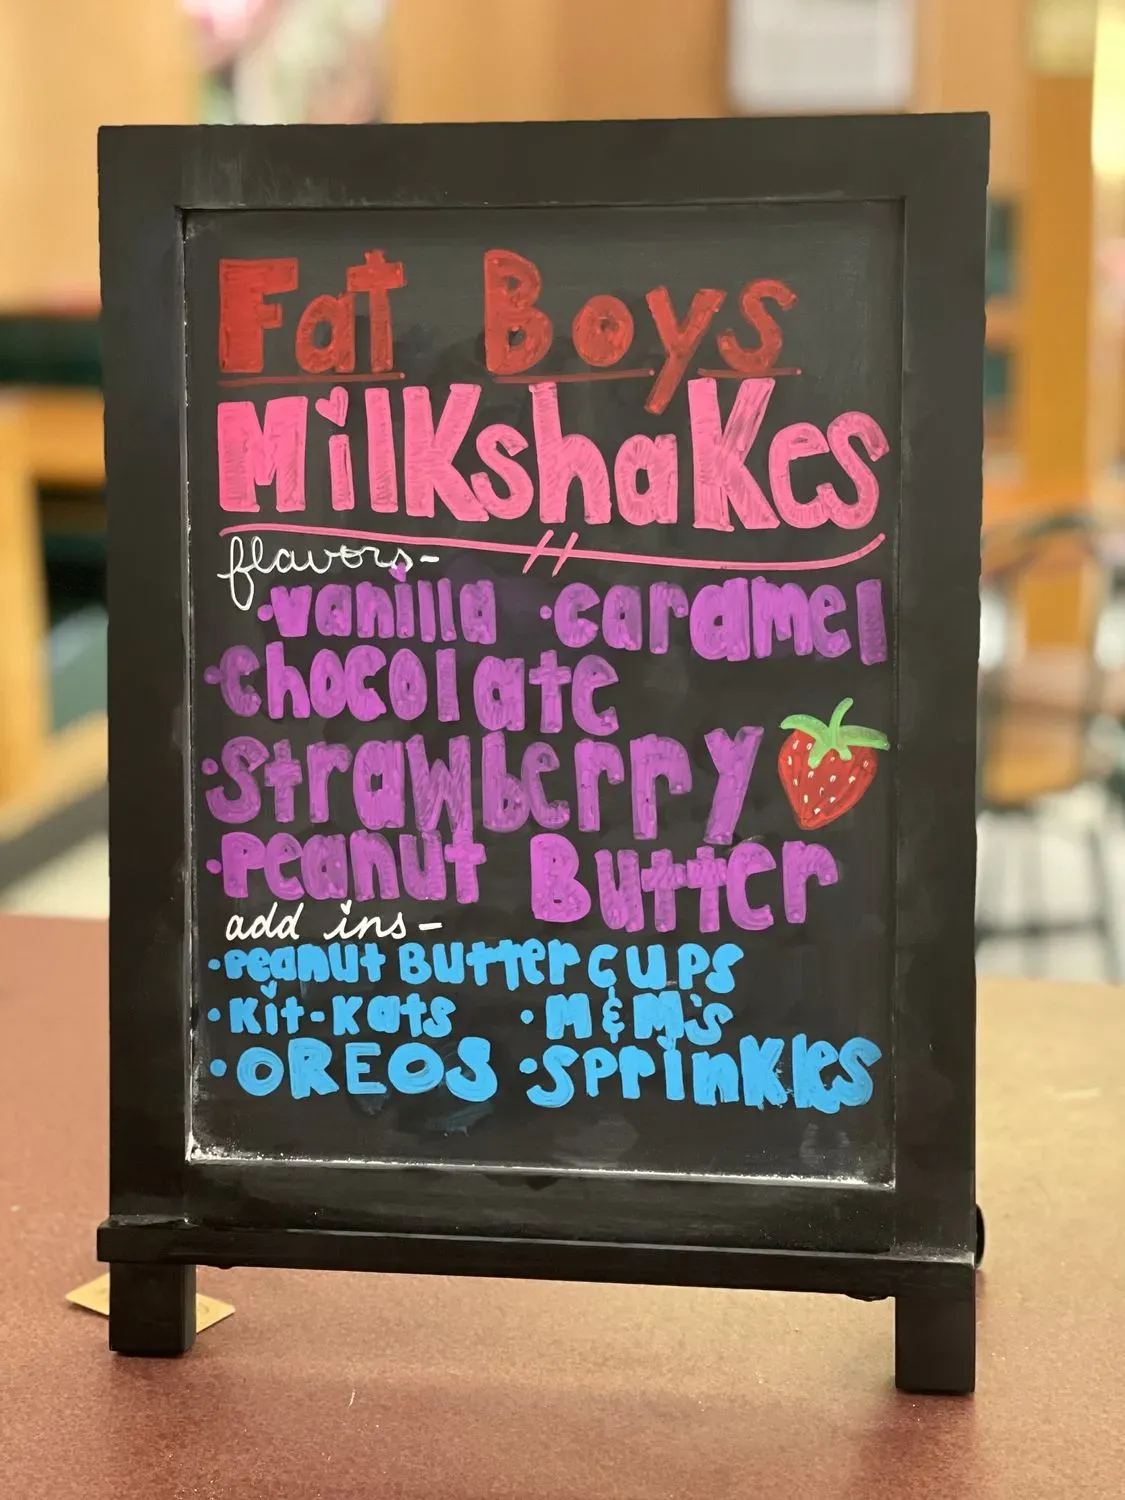 Fat Boys
Milkshakes
flavors-
·vanilla ·caramel
·chocolate
·strawberry
·Peanut Butter
add ins-
·Peanut Butter cups
·Kit-Kats ·M&M's
·OREOS ·sprinkles